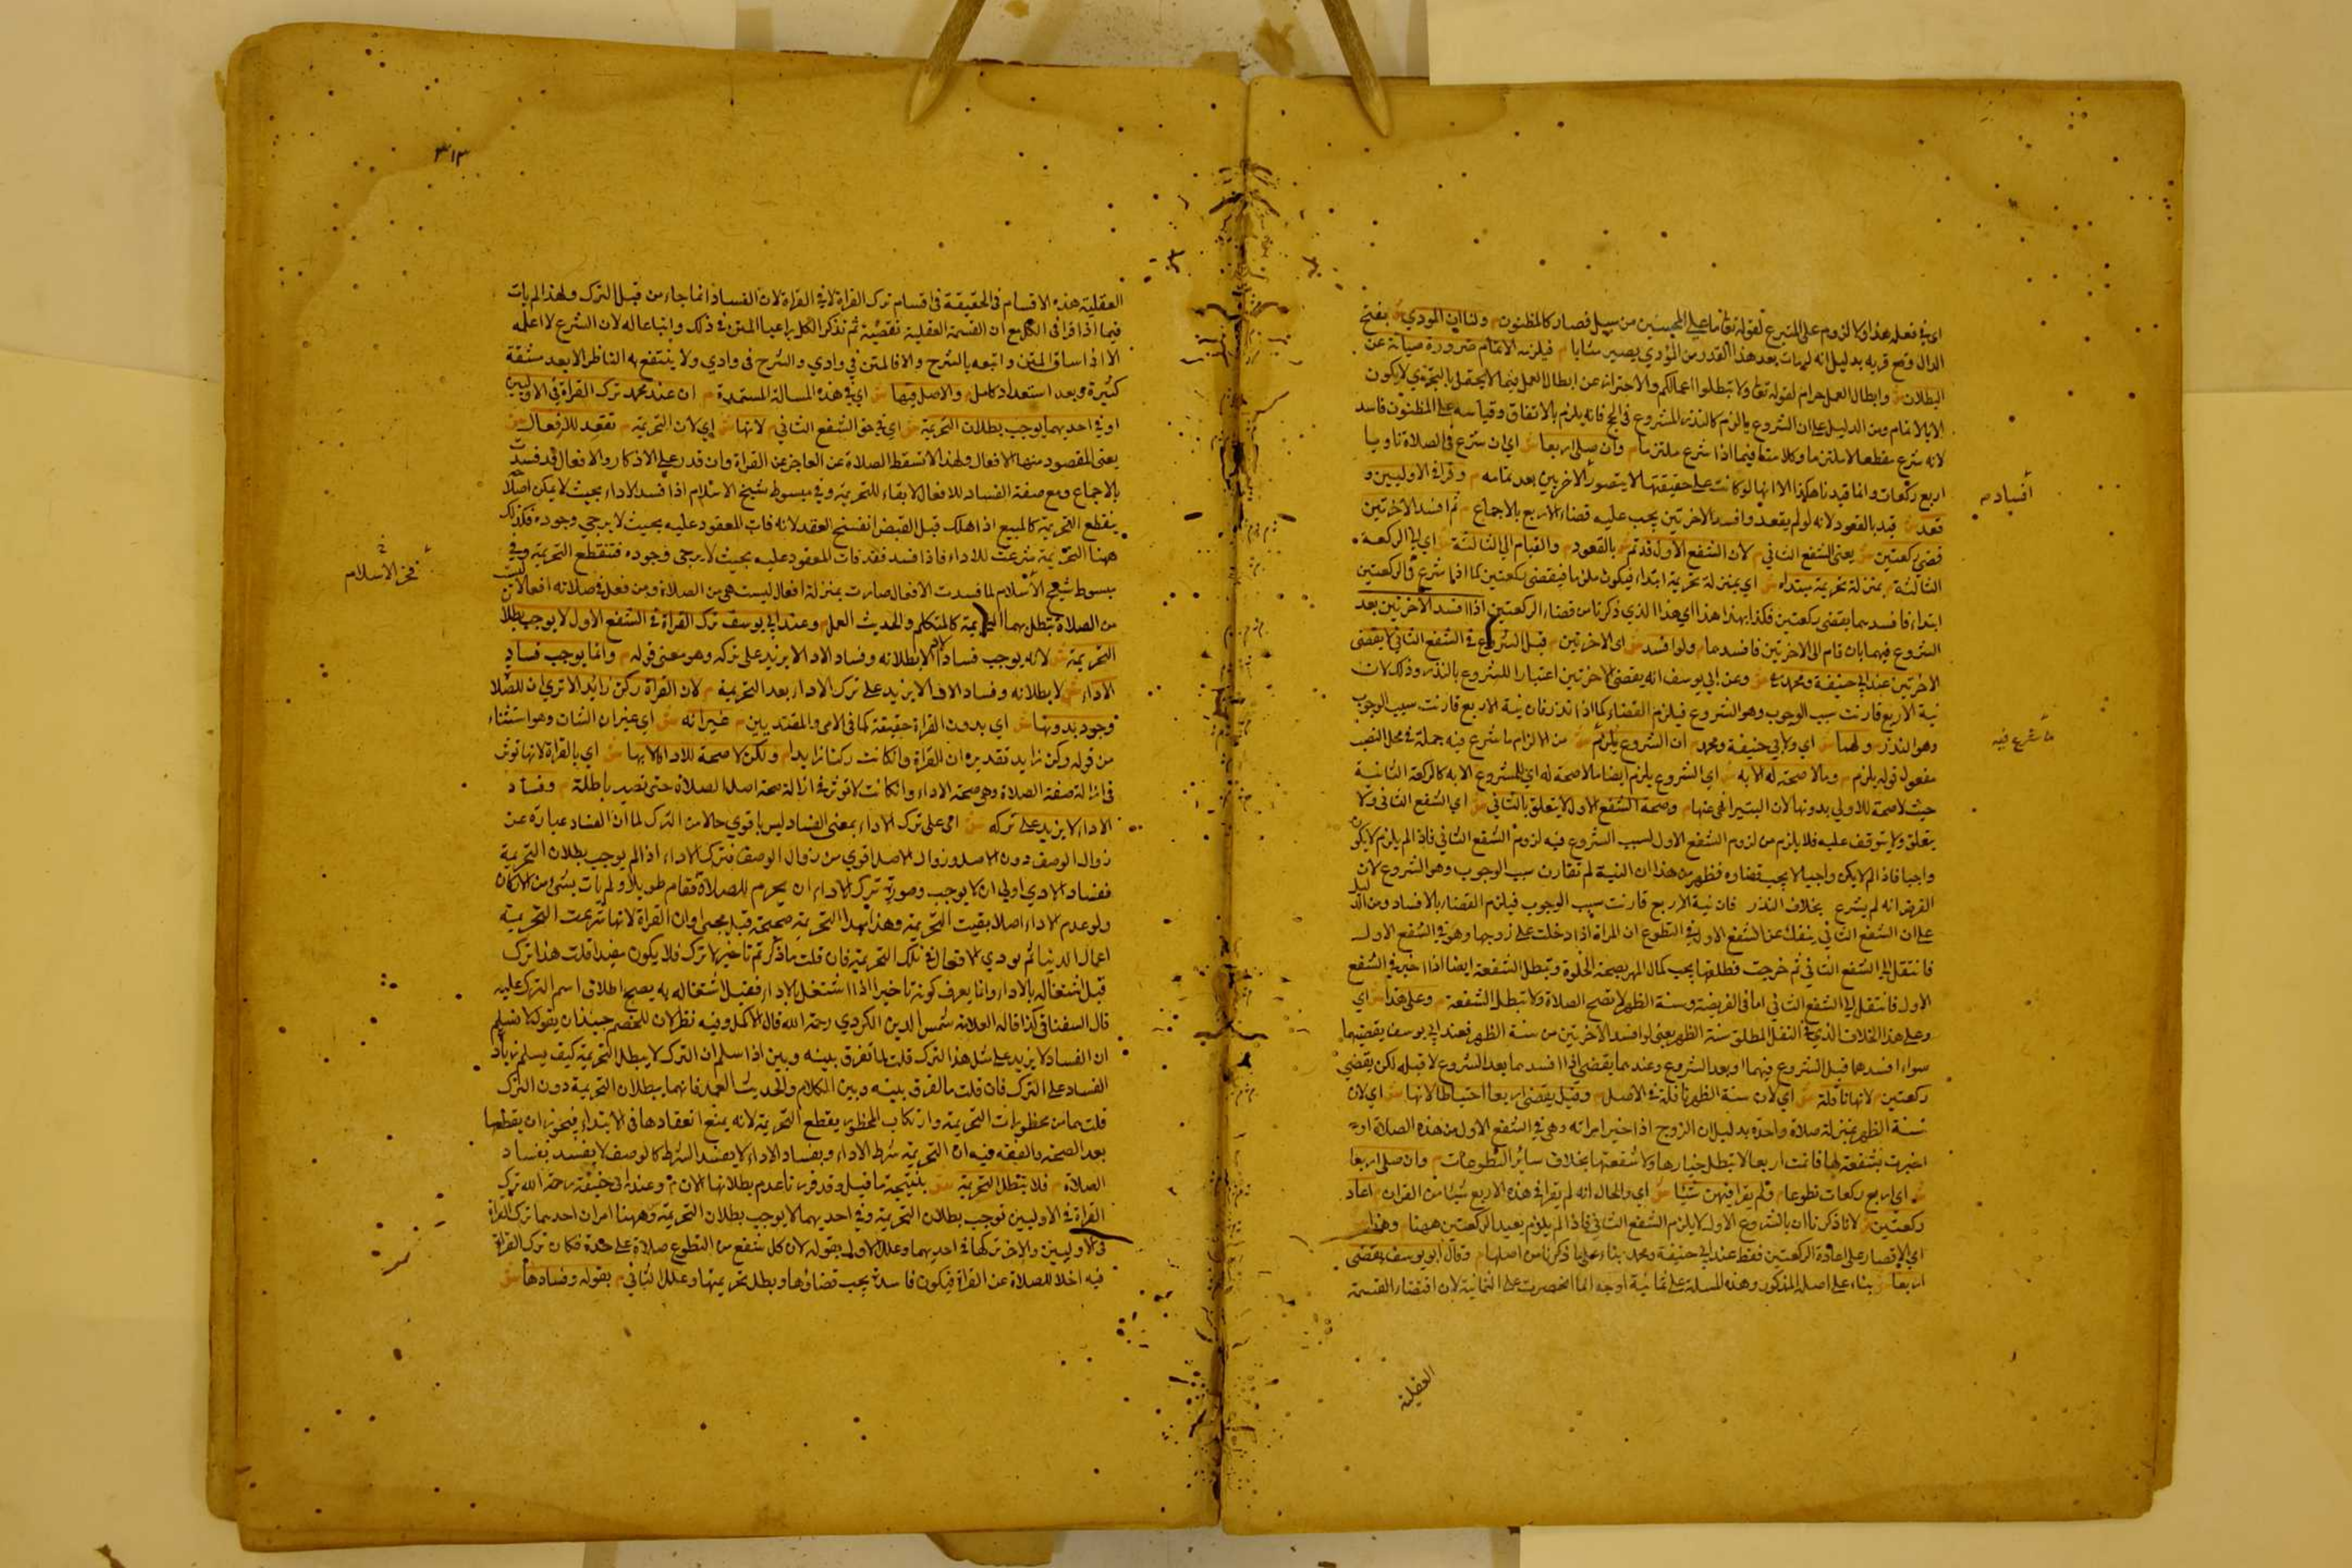 اي في فعله هذا ولا لزوم على المتبرع لقوله تعالى ما على المحسنين من سبيل فصار كالمظنون م ولنا ان المودي ش بفتح
الدال وقع قربة بدليل انه لو مات بعد هذا القدر من المؤدي يصير مثابا م فيلزمه الاتمام ضرورة صيانة عن
البطلان ش وابطال العمل حرام لقوله تعالى ولا تبطلوا اعمالكم والاحتراز عن ابطال العمل فيما لا يحتمل بالتجزي لا يكون
الا بالاتمام ومن الدليل على ان الشروع ملزم كالنذر المشروع في الحج فانه يلزم بالاتفاق وقياسه على المظنون فاسد
لانه شرع مقطعا لا ملتزما وكلامنا فيما اذا شرع ملتزما م وان صلى اربعا ش اي ان شرع في الصلاة ناويا
اربع ركعات وانما قيدنا هكذا الا انها لو كانت على حقيقتها لا يتصور الاخريين بعد تمامه م وقرا في الاوليين و
قعد ش قيد بالقعود لانه لو لم يقعد وافسد الاخرتين يجب عليه قضاء الاربع بالاجماع م ثم افسد الاخرتين
قضى ركعتين ش يعني الشفع الثاني م لان الشفع الاول قد تم ش بالقعود م والقيام الى الثالثة ش اي الى الركعة
الثالثة م بمنزلة تحريمة مبتداه ش اي بمنزلة تحريمة ابتداء فيكون ملزما فيقضي ركعتين كما اذا شرع في الركعتين
ابتداء فافسدهما يقضي ركعتين فكذا بهذا هذا اي هذا الذي ذكرنا من قضاء الركعتين اذا افسد الاخرتين بعد
الشروع فيهما بان قام الى الاخرتين فافسدهما م ولو افسد ش اي الاخرتين م قبل الشروع في الشفع الثاني لا يقضي
الاخرتين عند ابي حنيفة ومحمد ش وعن ابي يوسف انه يقضي الاخرتين اعتبارا للشروع بالنذر وذلك لان
نية الاربع قارنت سبب الوجوب وهو الشروع فيلزم القضاء كما اذا نذر فان نية الاربع قارنت سبب الوجوب
وهو النذر م ولهما ش اي ولابي حنيفة ومحمد م ان الشروع يلزم ش من الالزام ما شرع فيه جملة في محل النصب
مفعول قوله يلزم م وما لا صحة له الا به ش اي الشروع يلزم ايضا ما لا صحة له اي للمشروع الا به كالركعة الثانية
حيث لا صحة للاولي بدونها لان البتيرا نهى عنها م وصحة الشفع الاول لا يتعلق بالثاني ش اي الشفع الثاني ولا
يتعلق ولا يتوقف عليه فلا يلزم من لزوم الشفع الاول لسبب الشروع فيه لزوم الشفع الثاني فاذا لم يلزم لا يكون
واجبا فاذا لم يكن واجبا لا يجب قضاوه فظهر من هذا ان النية لم تقارن سبب الوجوب وهو الشروع لان
الفرض انه لم يشرع بخلاف النذر فان نية الاربع قارنت سبب الوجوب فيلزم القضاء بالافساد ومن الدليل
على ان الشفع الثاني ينفك عن الشفع الاول في التطوع ان المراة اذا دخلت على زوجها وهو في الشفع الاول
فانتقل الى الشفع الثاني ثم خرجت فطلقها يجب كمال المهر بصحة الخلوة وتبطل الشفعة ايضا اذا اخبر في الشفع
الاول فانتقل الى الشفع الثاني اما في الفريضة وسنة الظهر لا تصح الصلاة ولا تبطل الشفعة م وعلى هذا ش اي
وعلى هذا الخلاف الذي في النفل المطلق سنة الظهر يعني لو افسد الاخرتين من سنة الظهر فعند ابي يوسف يقضيهما
سواء افسدها قبل الشروع فيهما او بعد الشروع وعندهما يقضي اذا افسدهما بعد الشروع لا قبله لكن يقضي
ركعتين م لانها نافلة ش اي لان سنة الظهر نافلة في الاصل م وقيل يقضي اربعا احتياطا لانها ش اي لان
سنة الظهر بمنزلة صلاة واحدة بدليل ان الزوج اذا خير امراته وهي في الشفع الاول من هذه الصلاة او
اخبرت بشفعة لها فاتمت اربعا لا تبطل خيارها ولا شفعتها بخلاف سائر التطوعات م وان صلى اربعا
ش اي اربع ركعات تطوعا م ولم يقرا فيهن شيئا ش اي والحال انه لم يقرا في هذه الاربع شيئا من القران م اعاد
ركعتين ش لانا ذكرنا ان بالشروع الاول لا يلزم الشفع الثاني فاذا لم يلزم يعيد الركعتين ههنا م وهذا ش
اي الاقتصار على اعادة الركعتين فقط عند ابي حنيفة ومحمد بناء على ما ذكرنا من اصلهما م وقال ابو يوسف يقضي
اربعا ش بناء على اصله المذكور وهذه المسلة على ثمانية اوجه انما انحصرت على الثمانية لان اقتضاء القسمة
العقلية
أفساد م
ما شرع فيه
٣١٣
العقلية هذه الاقسام في الحقيقة في اقسام ترك القراة لا في القراة لان الفساد انما جاء من قبل الترك ولهذا لم يات
فيما اذا قرا في الكل مع ان القسمة العقلية تقضيه ثم نذكر الكل راعيا المتن في ذلك واتباعا له لان الشرع لا اعله
الا اذا ساق المتن واتبعه بالشرح والا فالمتن في وادي والشرح في وادي ولا ينتفع به الناظر الا بعد مشقة
كثيرة وبعد استعداد كامل م والاصل فيها ش اي في هذه المسالة المستمدة م ان عند محمد ترك القراة في الاوليين
او في احديهما يوجب بطلان التحريمة ش اي في حق الشفع الثاني م لانها ش اي لان التحريمة م تعقد للافعال ش
يعني المقصود منها الافعال ولهذا لا تسقط الصلاة عن العاجز عن القراة وان قدر على الاذكار والافعال قد فسدت
بالاجماع ومع صفة الفساد للافعال لا بقاء للتحريمة وفي مبسوط شيخ الاسلام اذا فسد الاداء بحيث لا يمكن اصلا
ينقطع التحريمة كالمبيع اذا هلك قبل القبض انفسخ العقد لانه فات المعقود عليه بحيث لا يرجي وجوده فكذلك
ههنا التحريمة شرعت للاداء فاذا فسد فقد فات المعقود عليه بحيث لا يرجى وجوده فتنقطع التحريمة وفي
مبسوط شيخ الاسلام لما فسدت الافعال صارت بمنزلة افعال ليست هي من الصلاة ومن فعل في صلاته افعالا ليست
من الصلاة تبطل بهما التحريمة كالمتكلم والحديث العمل م وعند ابي يوسف ترك القراة في الشفع الاول لا يوجب بطلا
التحريمة ش لانه يوجب فساد الادا لا بطلانه وفساد الادا لا يزيد على تركه وهو معنى قوله م وانما يوجب فساد
الاداء ش لا بطلانه وفساد الادا لا يزيد على ترك الاداء بعد التحريمة م لان القراة ركن زائد الا تري ان للصلا
وجود بدونها ش اي بدون القراة حقيقة كما في الامي والمقتدي بين م غير انه ش اي غير ان الشان وهو استثناء
من قوله ركن زايد تقديره ان القراة وان كانت ركنا زايدا م ولكن لا صحة للادا الا بها ش اي بالقراة لانها توثر
في ازالة صفة الصلاة وهي صحة الاداء وان كانت لا توثر في ازالة صحة اصل الصلاة حتى تصير باطلة م وفساد
الاداء لا يزيد على تركه ش اي على ترك الاداء بمعنى الفساد ليس باقوي حالا من الترك لما ان الفساد عبارة عن
زوال الوصف دون الاصل وزوال الاصل اقوي من زوال الوصف فترك الاداء اذا لم يوجب بطلان التحريمة
ففساد الادي اولي ان لا يوجب وصورة ترك الاداء ان يحرم للصلاة فقام طويلا ولم يات بشي من الاركان
ولو عدم الاداء اصلا بقيت التحريمة وهذا لهذا التحريمة صحيحة قبل مجي اوان القراة لانها شرعت التحريمة
اعمال الدنيا ثم يودي الافعال في تلك التحريمة فان قلت ما ذكرتم تاخير لا ترك فلا يكون مفيدا قلت هذا ترك
قبل اشتغاله بالاداء وانما يعرف كونه تاخيرا اذا اشتغل بالاداء فقبل اشتغاله به يصح اطلاق اسم الترك عليه
قال السغناقي كذا قاله العلامة شمس الدين الكردري رحمة الله قال الاكمل وفيه نظر لان للخصم حينئذ ان يقول لا نسلم
ان الفساد لا يزيد على مثل هذا الترك قلت لما تفرق بينه وبين اذا سلم ان الترك لا يبطل التحريمة كيف يسلم زيادة
الفساد على الترك فان قلت ما الفرق بينه وبين الكلام والحديث العمد فانهما يبطلان التحريمة دون الترك
قلت هما من محظورات التحريمة وارتكاب المحظور يقطع التحريمة لانه يمنع انعقادها في الابتداء فيجوز ان يقطعها
بعد الصحة والفقه فيه ان التحريمة شرط الاداء وبفساد الاداء لا يفسد الشرط كالوصف لا يفسد بفساد
الصلاة م فلا يتطل التحريمة ش نتيجة ما قيل وقد قررنا عدم بطلانها الان م وعند ابي حنيفة رحمة الله ترك
القراة في الاوليين توجب بطلان التحريمة وفي احديهما لا يوجب بطلان التحريمة وههنا امران احدهما ترك القراة
في الاوليين والاخر تركها في احديهما وعلل الاول بقوله لان كل شفع من التطوع صلاة على حدة فكان ترك القراة
فيه اخلا للصلاة عن القراة فيكون فاسدة يجب قضاؤها ويبطل تحريمتها وعلل الثاني م بقوله وفسادها ش
فخر الاسلام